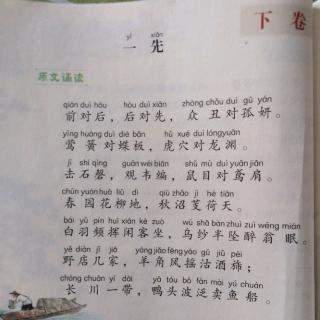 下卷
yì xiān
一先
原文诵读
qián duì hòu hòu duì xiān zhòng chǒu duì gū yán
前对后，后对先，众丑对孤妍。
yīng huáng duì dié bǎn hǔ xué duì lóng yuān
莺簧对蝶板，虎穴对龙渊。
jī shí qìng guān wéi biān shǔ mù duì yuān jiān
击石磬，观韦编，鼠目对鸢肩。
chūn yuán huā liǔ dì qiū zhǎo jì hé tiān
春园花柳地，秋沼芰荷天。
bái yǔ pín huī xián kè zuò wū shā bàn zhuì zuì wēng mián
白羽频挥闲客坐，乌纱半坠醉翁眠。
yě diàn jǐ jiā yáng jiǎo fēng yáo gū jiǔ pèi
野店几家，羊角风摇沽酒旆；
cháng chuān yí dài yā tóu bō fàn mài yú chuán
长川一带，鸭头波泛卖鱼船。